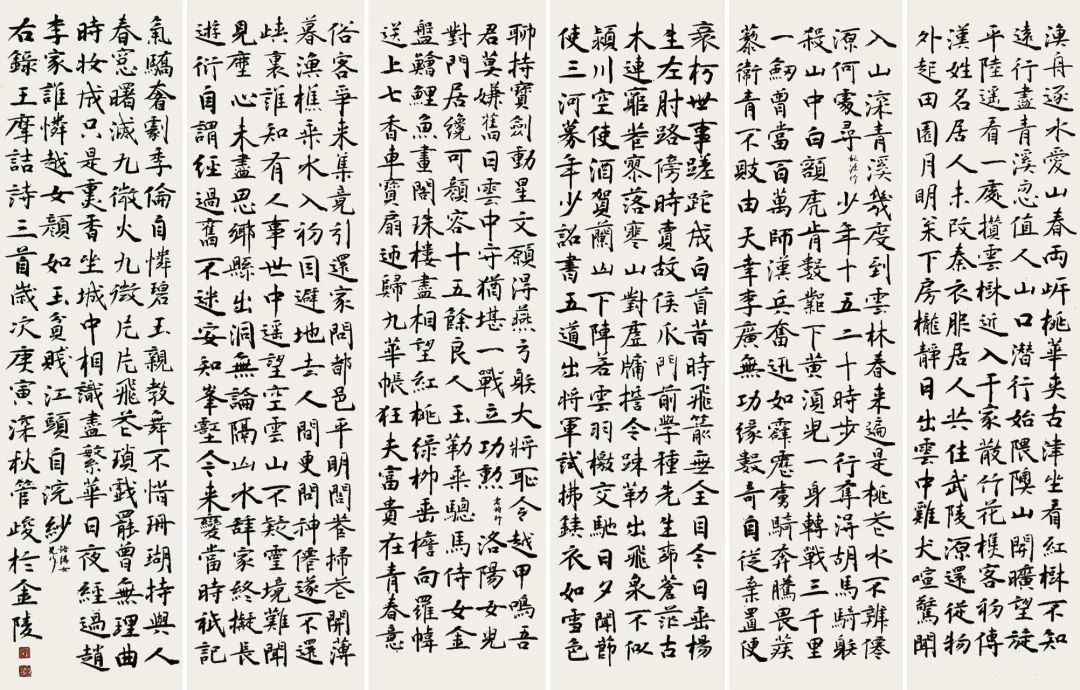 漁舟逐水愛山春兩岸桃華夾古津坐看紅樹不知
遠行盡青溪忽值人山口潛行始隈隩山開曠望旋
平陸遙看一處攢雲樹近入千家散竹花樵客初傳
漢姓名居人未改秦衣服居人共住武陵源還從物
外起田園月明松下房櫳靜日出雲中雞犬喧驚聞
入山深青溪幾度到雲林春來遍是桃花水不辨僊
源何處尋 桃源行 少年十五二十時步行奪得胡馬騎射
殺山中白額虎肯數鄴下黃須兒一身轉戰三千里
一劍曾當百萬師漢兵奮迅如霹靂虜騎奔騰畏蒺
藜衛青不敗由天幸李廣無功緣數奇自從棄置便
衰朽世事蹉跎成白首昔時飛箭無全目今日垂楊
生左肘路傍時賣故侯瓜門前學種先生柳蒼茫古
木連窮巷寥落寒山對虛牖誓令疎勒出飛泉不似
潁川空使酒賀蘭山下陣若雲羽檄交馳日夕聞節
使三河募年少詔書五道出將軍試拂鐵衣如雪色
聊持寶劍動星文願得燕弓射大將恥令越甲鳴吾
君莫嫌舊日雲中守猶堪一戰立功勳 老將行 洛陽女兒
對門居纔可顏容十五餘良人玉勒乘驄馬侍女金
盤鱠鯉魚畫閣珠樓盡相望紅桃綠柳垂檐向羅幃
送上七香車寶扇迎歸九華帳狂夫富貴在青春意
俗客爭來集競引還家問都邑平明閭巷掃花開薄
暮漁樵乘水入初因避地去人間更問神僊遂不還
峽裏誰知有人事世中遙望空雲山不疑靈境難聞
見塵心未盡思鄉縣出洞無論隔山水辭家終擬長
遊衍自謂經過舊不迷安知峯壑今來變當時祇記
氣驕奢劇季倫自憐碧玉親教舞不惜珊瑚持與人
春窓曙滅九微火九微片片飛花瑣戲罷曾無理曲
時妝成只是熏香坐城中相識盡繁華日夜經過趙
李家誰憐越女顏如玉貧賤江頭自浣紗 洛陽女兒行
右錄王摩詰詩三首歲次庚寅深秋管峻於金陵